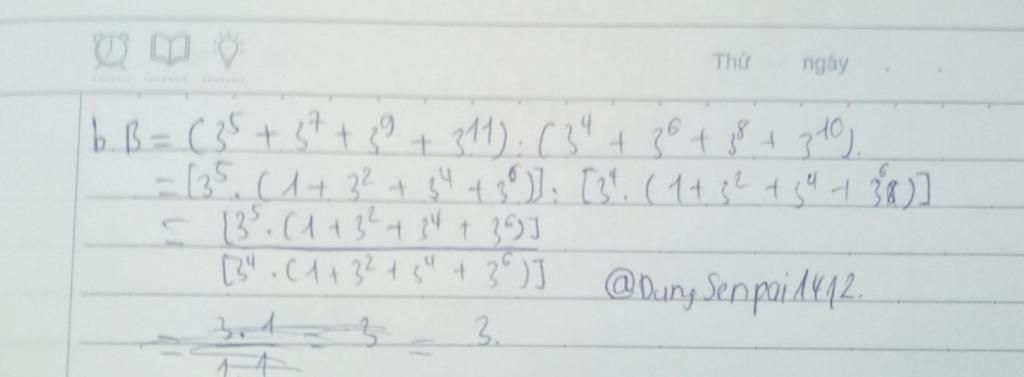 Thứ ngày . .
b. B = (3⁵ + 3⁷ + 3⁹ + 3¹¹) : (3⁴ + 3⁶ + 3⁸ + 3¹⁰).
= [3⁵ . (1 + 3² + 3⁴ + 3⁶)] : [3⁴ . (1 + 3² + 3⁴ + 3⁶)]
= [3⁵ . (1 + 3² + 3⁴ + 3⁶)]
[3⁴ . (1 + 3² + 3⁴ + 3⁶)]
@DungSenpai1412.
= 3.1 = 3 = 3.
1.1